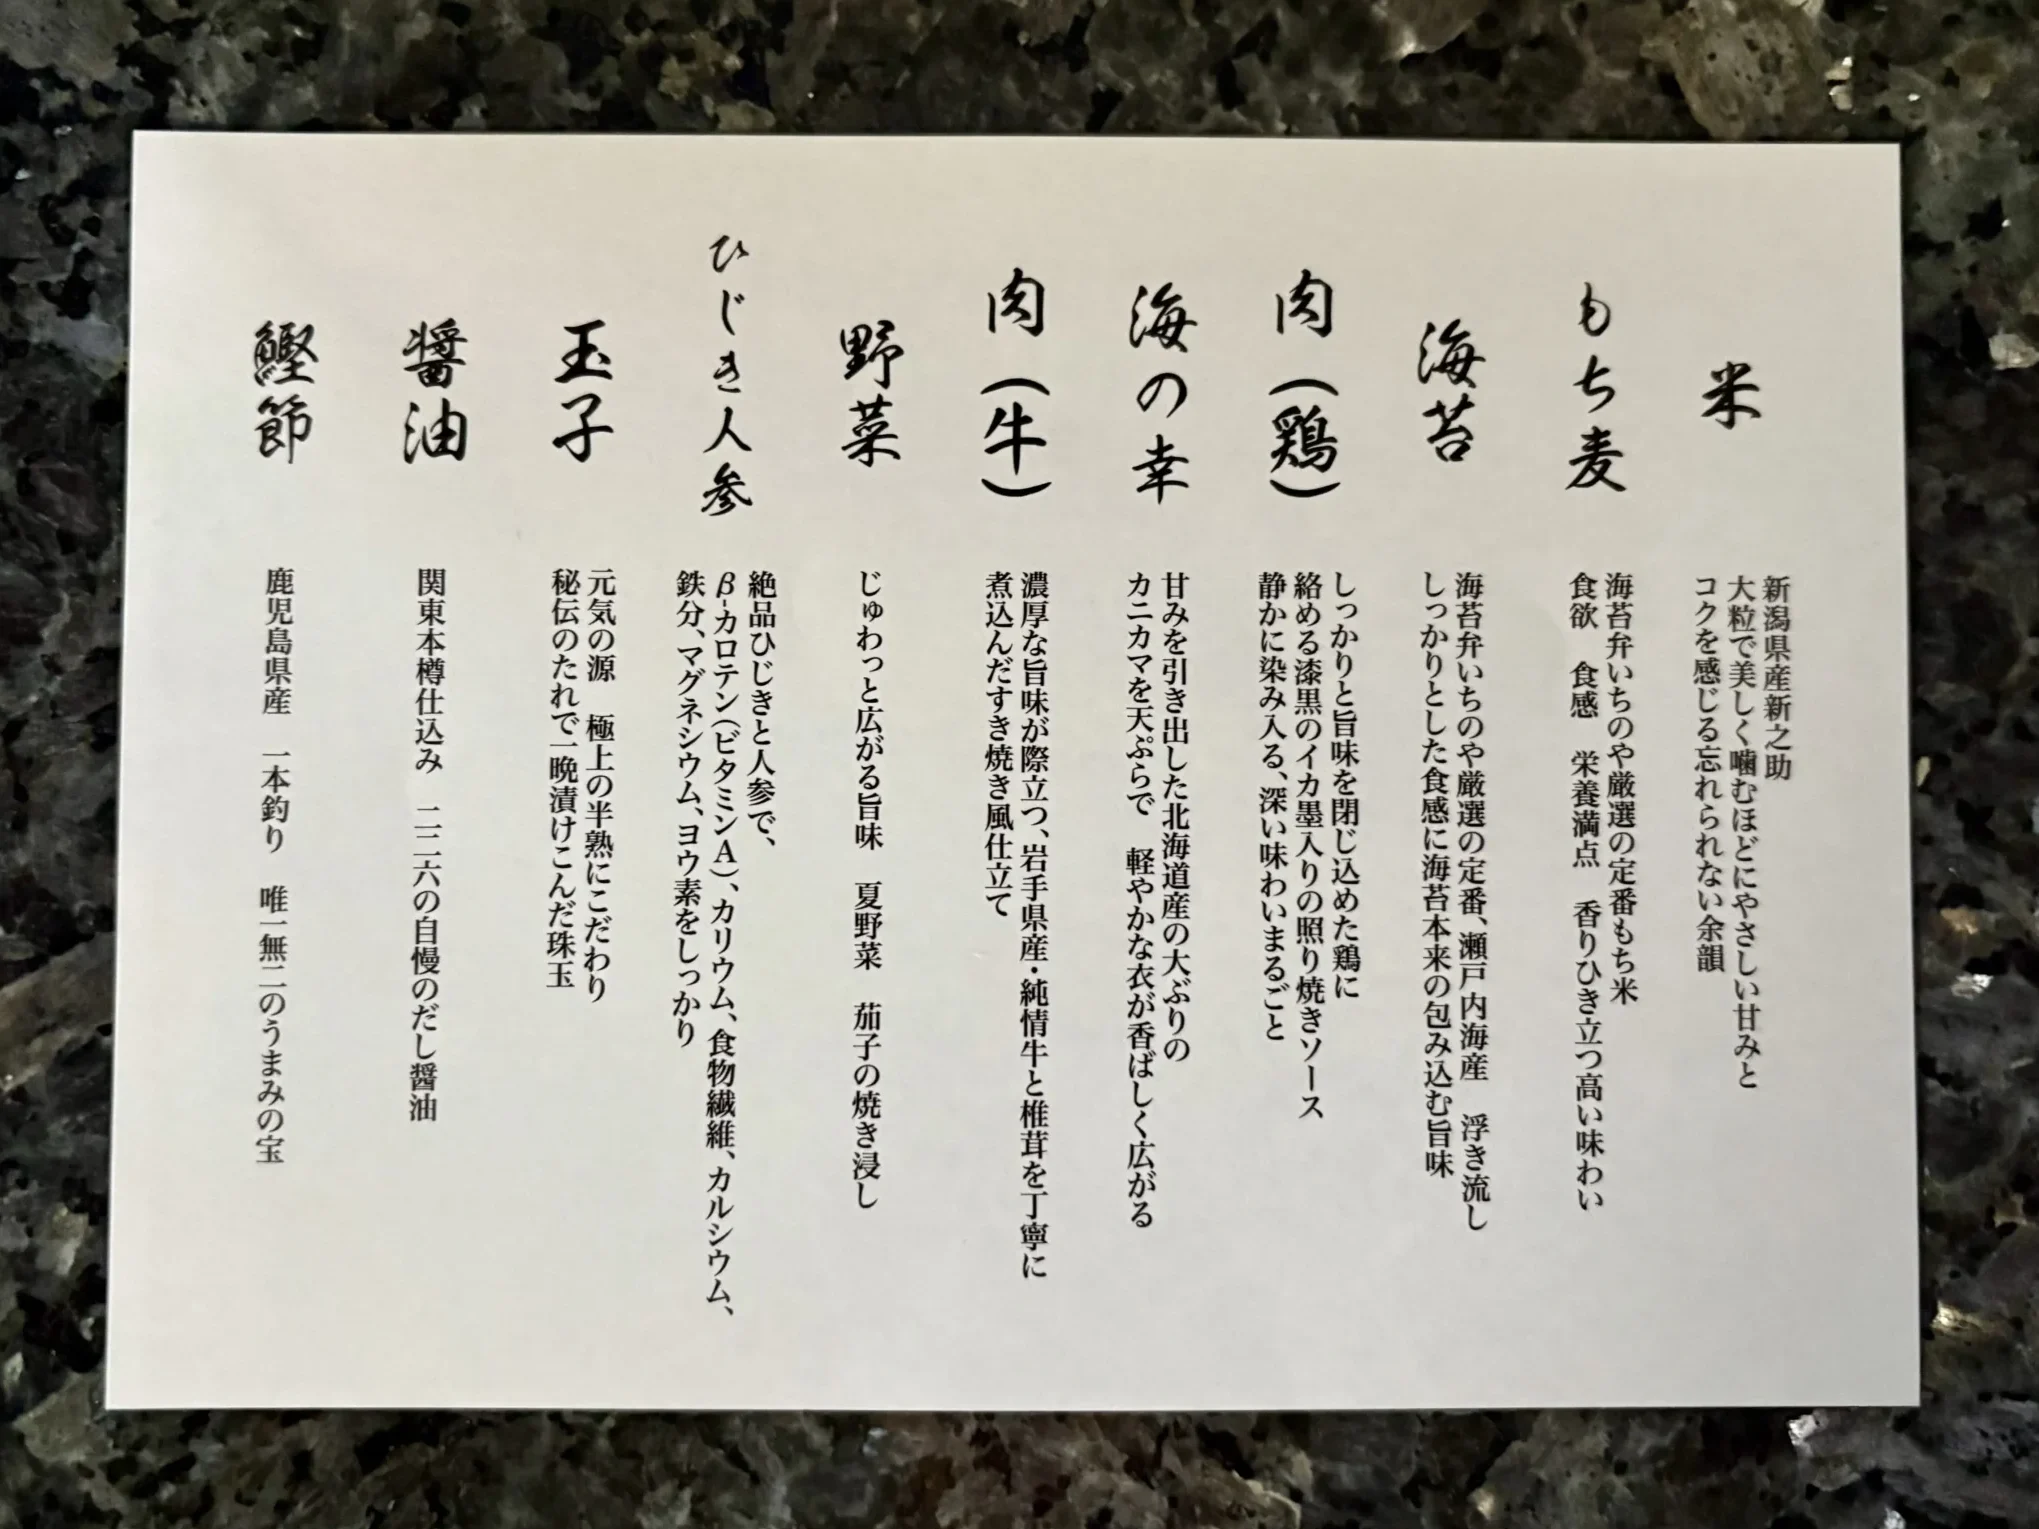 米
新潟県産新之助
大粒で美しく噛むほどにやさしい甘みと
コクを感じる忘れられない余韻
もち麦
海苔弁いちのや厳選の定番もち米
食欲　食感　栄養満点　香りひき立つ高い味わい
海苔
海苔弁いちのや厳選の定番、瀬戸内海産　浮き流し
しっかりとした食感に海苔本来の包み込む旨味
肉（鶏）
しっかりと旨味を閉じ込めた鶏に
絡める漆黒のイカ墨入りの照り焼きソース
静かに染み入る、深い味わいまるごと
海の幸
甘みを引き出した北海道産の大ぶりの
カニカマを天ぷらで　軽やかな衣が香ばしく広がる
肉（牛）
濃厚な旨味が際立つ、岩手県産・純情牛と椎茸を丁寧に
煮込んだすき焼き風仕立て
野菜
じゅわっと広がる旨味　夏野菜　茄子の焼き浸し
ひじき人参
絶品ひじきと人参で、
β-カロテン（ビタミンA）、カリウム、食物繊維、カルシウム、
鉄分、マグネシウム、ヨウ素をしっかり
玉子
元気の源　極上の半熟にこだわり
秘伝のたれで一晩漬けこんだ珠玉
醤油
関東本樽仕込み　二二六の自慢のだし醤油
鰹節
鹿児島県産　一本釣り　唯一無二のうまみの宝